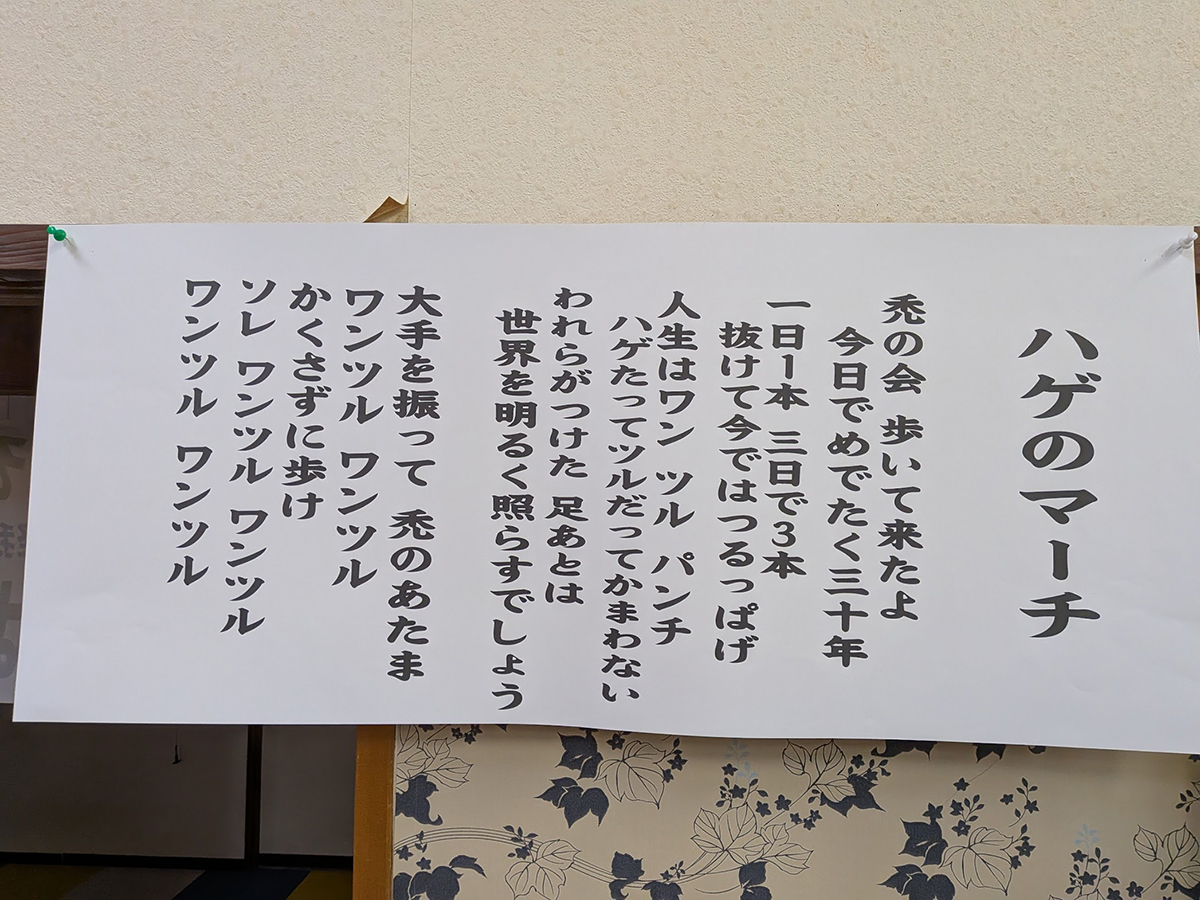 ハゲのマーチ
禿の会 歩いて来たよ
今日でめでたく三十年
一日1本 三日で3本
抜けて今ではつるっぱげ
人生はワン ツル パンチ
ハゲたってツルだってかまわない
われらがつけた 足あとは
世界を明るく照らすでしょう
大手を振って 禿のあたま
ワンツル ワンツル
かくさずに歩け
ソレ ワンツル ワンツル
ワンツル ワンツル